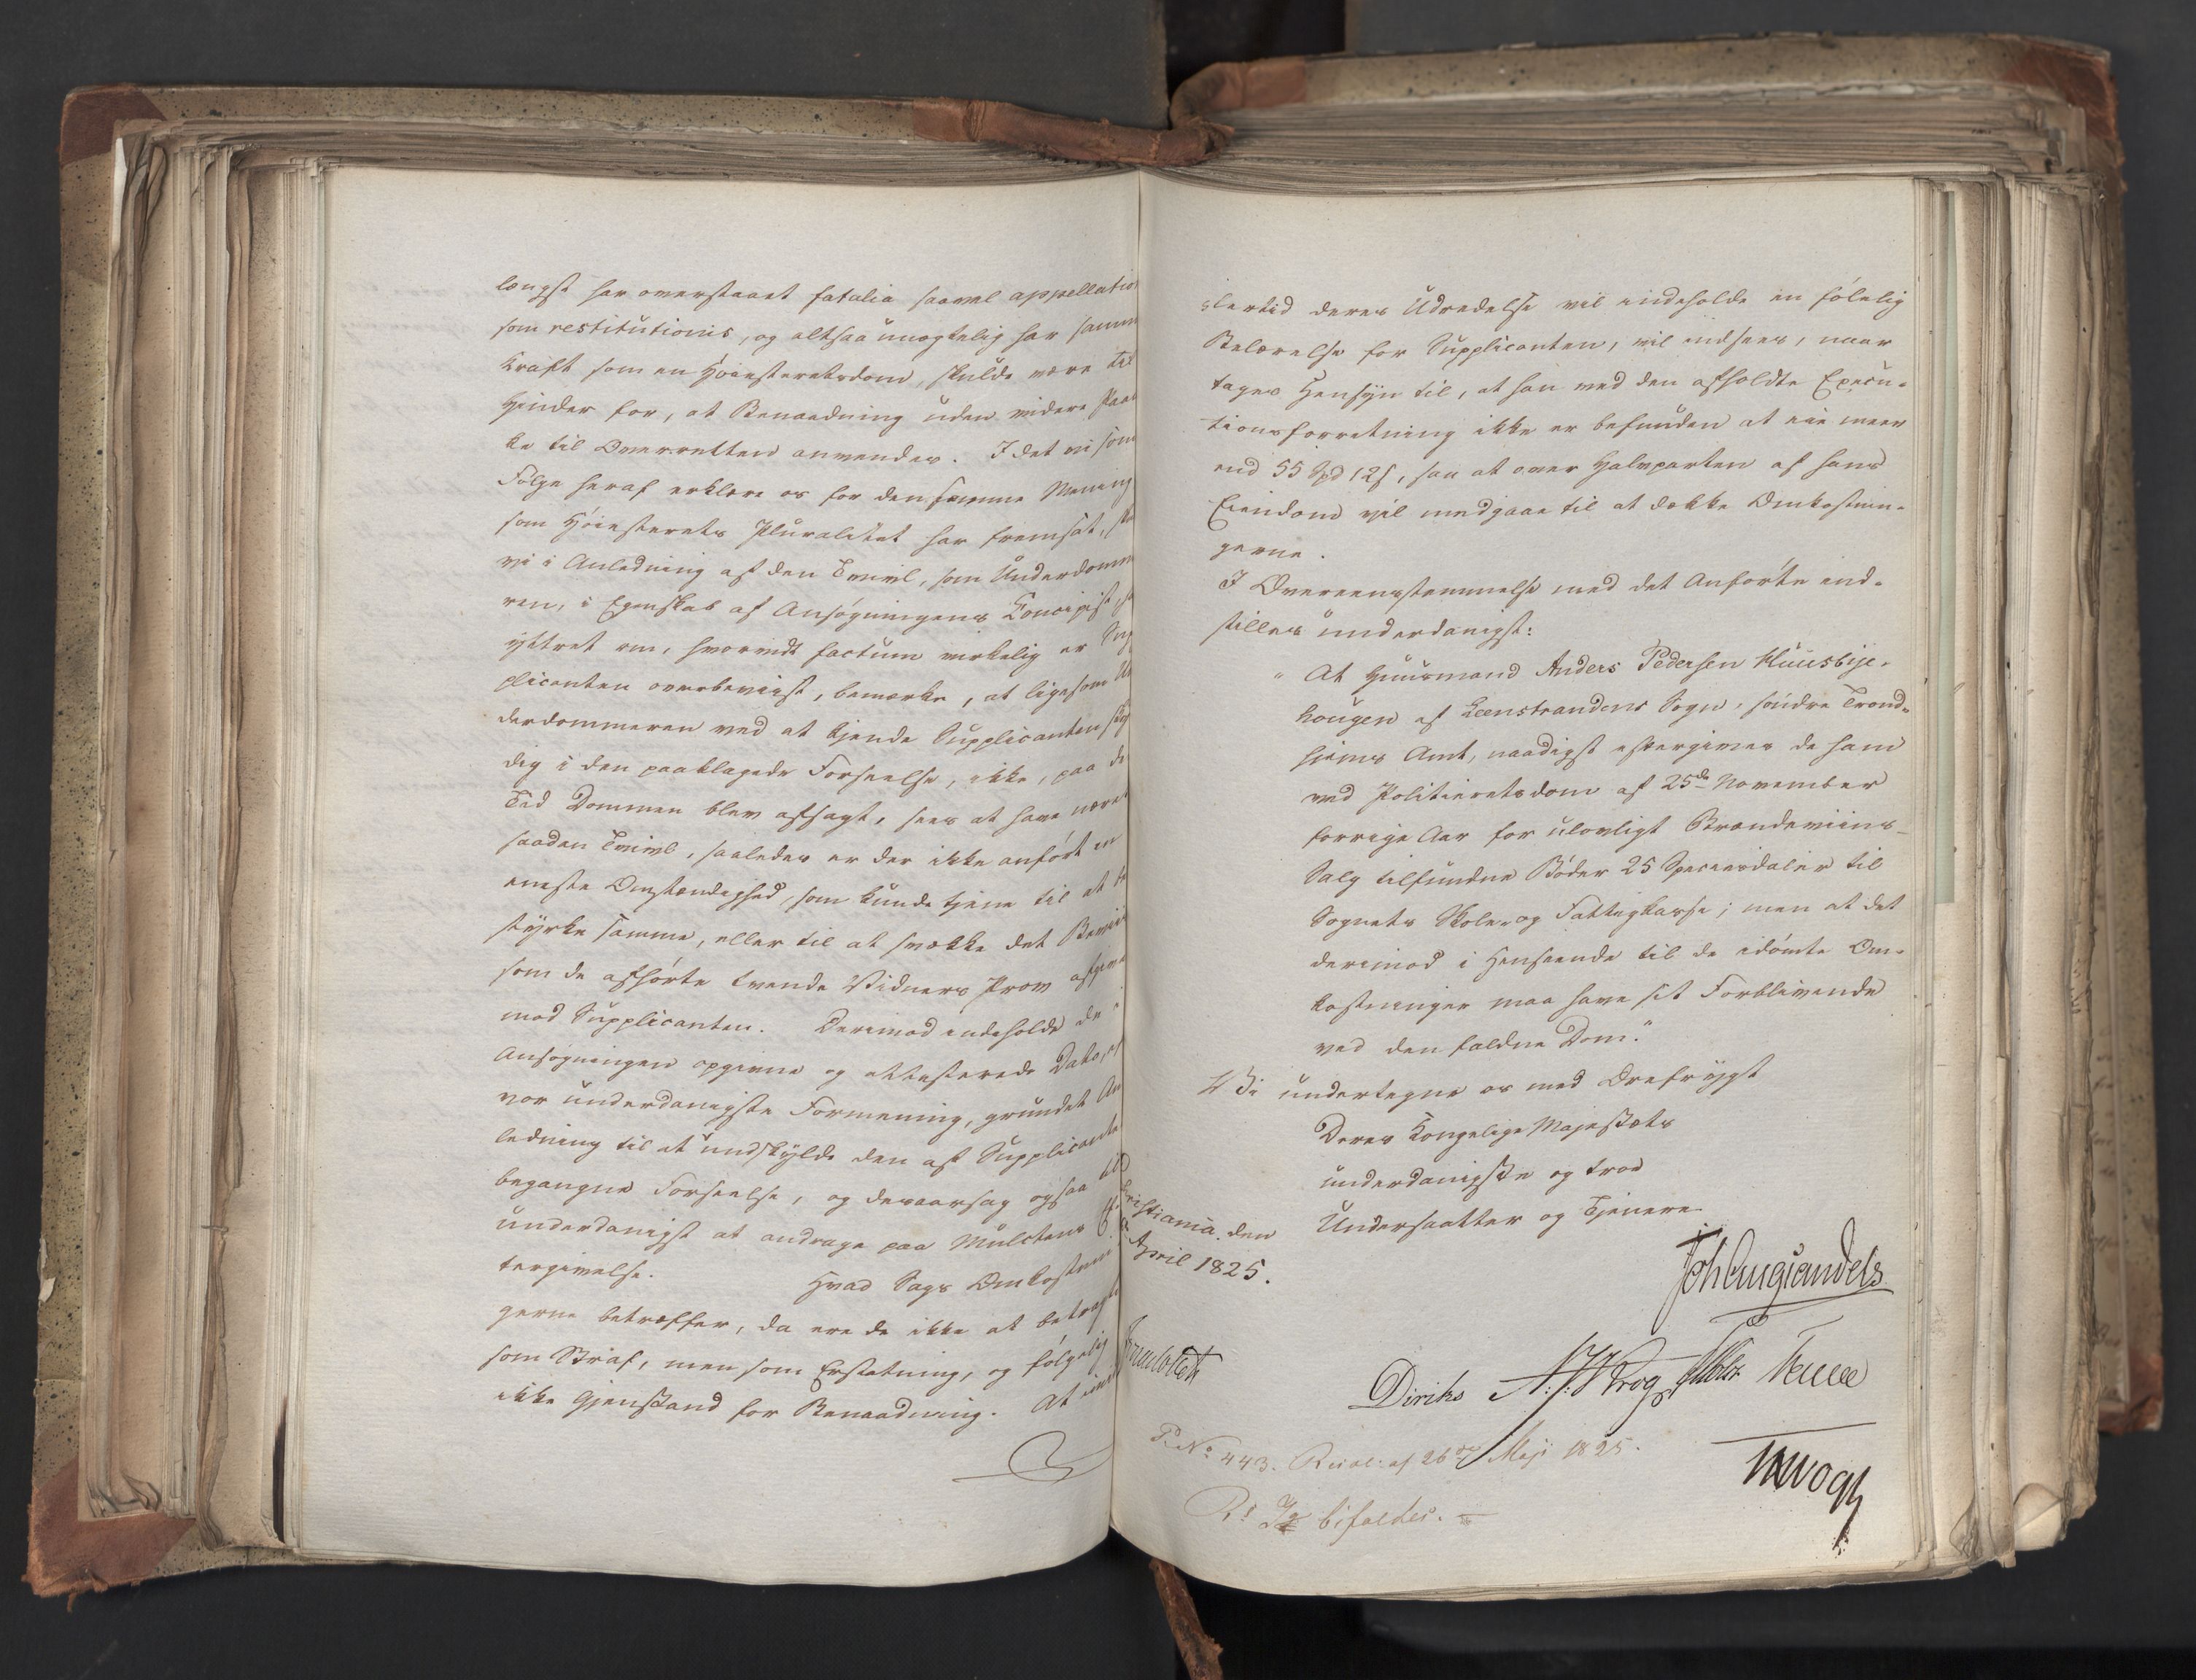 længst har overstaaet fatalia saavel appellatio
som restitutionis, og altsaa unægtelig har samme
Kraft som en Höiesteretsdom, skulde være til
Hinder for, at Benaadning uden videre Paa
ke til Overretten anvendes. I det vi som
Fölge heraf erklære os for den samme Mening
som Höiesterets Pluralitet har fremsat,
vi i Anledning af den Tvivl, som Underdomme
ren, i Egenskab af Ansøgningens Concipist,
yttret om, hvorvidt factum virkelig er Sup
plicanten overbeviist, bemærke, at ligesom Un
derdommeren ved at kjende Supplicanten skyl
dig i den paaklagede Forseelse, ikke, paa de
Tid Dommen blev afsagt, sees at have næret
saadan Tvivl, saaledes er der ikke anfört en
eneste Omstændighed, som kunde tjene til at be
styrke samme, eller til at svække det Beviis
som de afhörte tvende Vidners Prov afgive
mod Supplicanten. Derimod indeholde de i
Ansøgningen opgivne og attesterede Data, ef
vor underdanigste Formening, grundet An
ledning til at undskylde den af Supplicanten
begangne Forseelse, og desaarsag ogsaa til
underdanigst at andrage paa Mulctens Ef
tergivelse. Hvad Sags Omkostnin
gerne betræffer, da ere de ikke at betragte
som Straf, men som Erstatning, og fölgelig
ikke Gjenstand for Benaadning. At imid
lertid deres Udredelse vil indeholde en fölelig
Belærelse for Supplicanten, vil indsees, naar
tages Hensyn til, at han ved den afholdte Execu-
tionsforretning ikke er befunden at eie meer
end 55 Spd 12 s, saa at over Halvparten af hans
Eiendom vil medgaae til at dække Omkostnin-
gerne.
I Overeensstemmelse med det Anförte ind-
stilles underdanigst:
" At Huusmand Anders Pedersen Huusbye-
hougen af Leenstrandens Sogn, söndre Trond-
hjems Amt, naadigst eftergives de ham
ved Politieretsdom af 25de November
forrige Aar for ulovligt Brændeviins-
Salg tilfundne Böder 25 Speciesdaler til
Sognets Skole- og Fattigkasse; men at det
derimod i Henseende til de idömte Om-
kostninger maa have sit Forblivende
ved den faldne Dom."
Vi undertegne os med Ærefrygt
Deres Kongelige Majestæts
underdanigste og troe
Undersaatter og Tjenere.
Christiania den
April 1825.
Joh Aug Sandels
Diriks
N: J: W Krog
P. No 443. Resol: af 26de Maji 1825.
Rs If bifaldes.